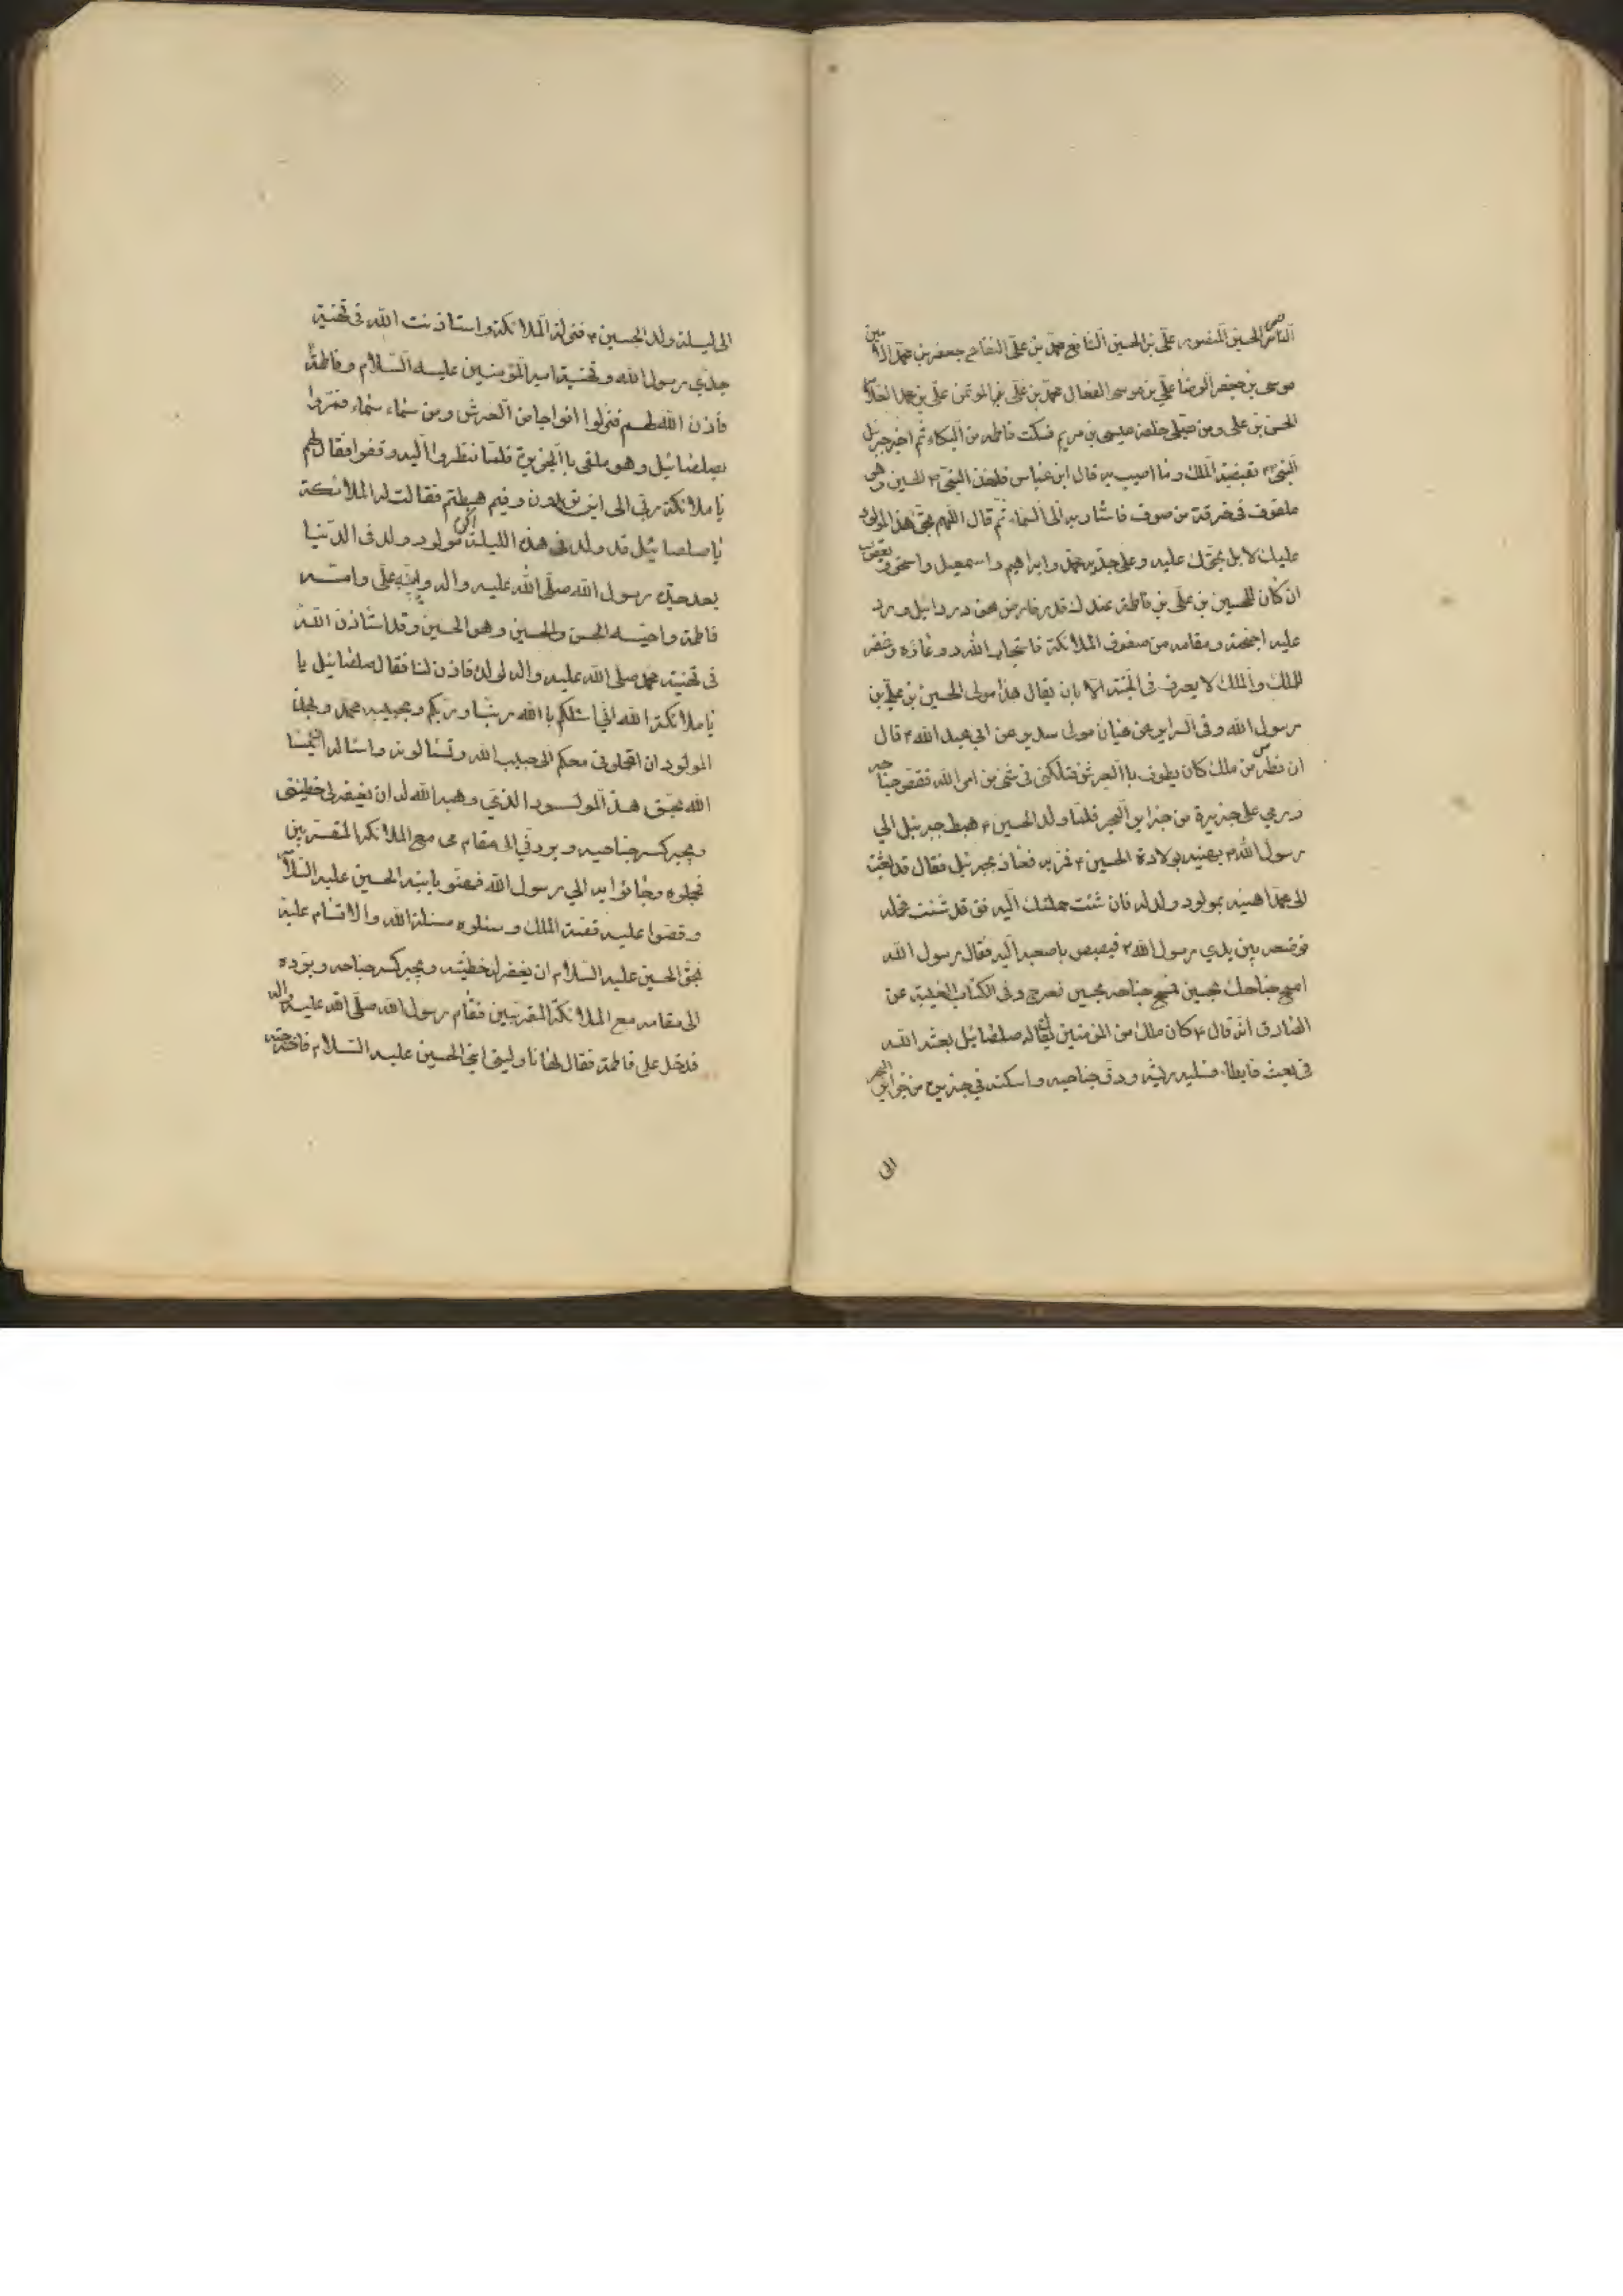 الناصر الحسين المنصور علي بن الحسين الشافع محمد بن علي النفاع جعفر بن محمد الامين
موسى بن جعفر الرضا علي بن موسى الفعال محمد بن علي المؤتمن علي بن محمد العلام
الحسن بن علي ومن يصلي خلفه عيسى بن مريم فسكت فاطمه من البكاء ثم اخبر جبرئيل
النبي ص بقضية الملك وما اصيب به قال ابن عباس فاخذ النبي ص الحسين وهو
ملفوف في خرقة من صوف فاشار به الى السماء ثم قال اللهم بحق هذا المولود
عليك لا بل بحقك عليه وعلى جده محمد وابراهيم واسمعيل واسحق ويعقوب
ان كان للحسين بن علي بن فاطمة عندك قدر فارض عن دردائيل ورد
عليه اجنحته ومقامه من صفوف الملائكة فاستجاب الله دعاؤه وغفر
للملك والملك لا يعرف في الجنة الا بان يقال هذا مولى الحسين بن علي بن
رسول الله وفي السراير عن حنان مولى سدير عن ابي عبد الله ع قال
ان فطرس ملك كان يطوف بالعرش فتلكى في شئ من امر الله فقص جناحه
ورمي على جزيرة من جزاير البحر فلما ولد الحسين ع هبط جبرئيل الي
رسول الله ص يهنيه بولادة الحسين ع فمر به فعاذ بجبرئيل فقال قد بعثت
الى محمد اهنيه بمولود ولد له فان شئت حملتك اليه فق قد شئت فحمله
فوضعه بين يدي رسول الله ص فبصبص باصبعه اليه فقال رسول الله
امسح جناحك بحسين فمسح جناحه بحسين فعرج وفي الكتاب الغيبة عن
الصادق انه قال ع كان ملك من المؤمنين يقال له صلصائيل بعثه الله
في بعث فابطاء فسلبه ريشه ودق جناحيه واسكنه في جزيرة من جزاير البحر
الى
الى ليلة ولد الحسين ع فنزلت الملائكة واستاذنت الله في تهنية
جدي رسول الله وتهنية امير المؤمنين عليه السلام وفاطمة
فأذن الله لهم فنزلوا افواجا من العرش ومن سماء سماء فمروا
بصلصائيل وهو ملقى بالجزيرة فلما نظروا اليه وقفوا فقال لهم
يا ملائكة ربي الى اين تريدون وفيم هبطتم فقالت له الملائكة
يا صلصائيل قد ولد في هذه الليلة اكرم مولود ولد في الدنيا
بعد جده رسول الله صلى الله عليه واله وابيه علي وامه
فاطمة واخيه الحسن والحسين وهو الحسين وقد استأذن الله
في تهنية محمد صلى الله عليه واله لولده فاذن لنا فقال صلصائيل يا
يا ملائكة الله اني اسئلكم بالله ربنا وربكم وبحبيبه محمد وبهذا
المولود ان تحملوني معكم الى حبيب الله وتسالونه واساله ان يسأل
الله بحق هذا المولود الذي وهبه الله له ان يغفر لي خطيئتي
ويجبر كسر جناحيه ويردني الى مقام مي مع الملائكة المقربين
فحملوه وجاؤا به الي رسول الله فهنو بابنه الحسين عليه السلام
وقصوا عليه قصة الملك وسئلوه مسئلة الله والاقسام عليه
بحق الحسين عليه السلام ان يغفر له خطيئته ويجبر كسر جناحه ويرده
الى مقامه مع الملائكة المقربين فقام رسول الله صلى الله عليه واله
فدخل على فاطمة فقال لها ناوليني ابني الحسين عليه السلام فاخرجته